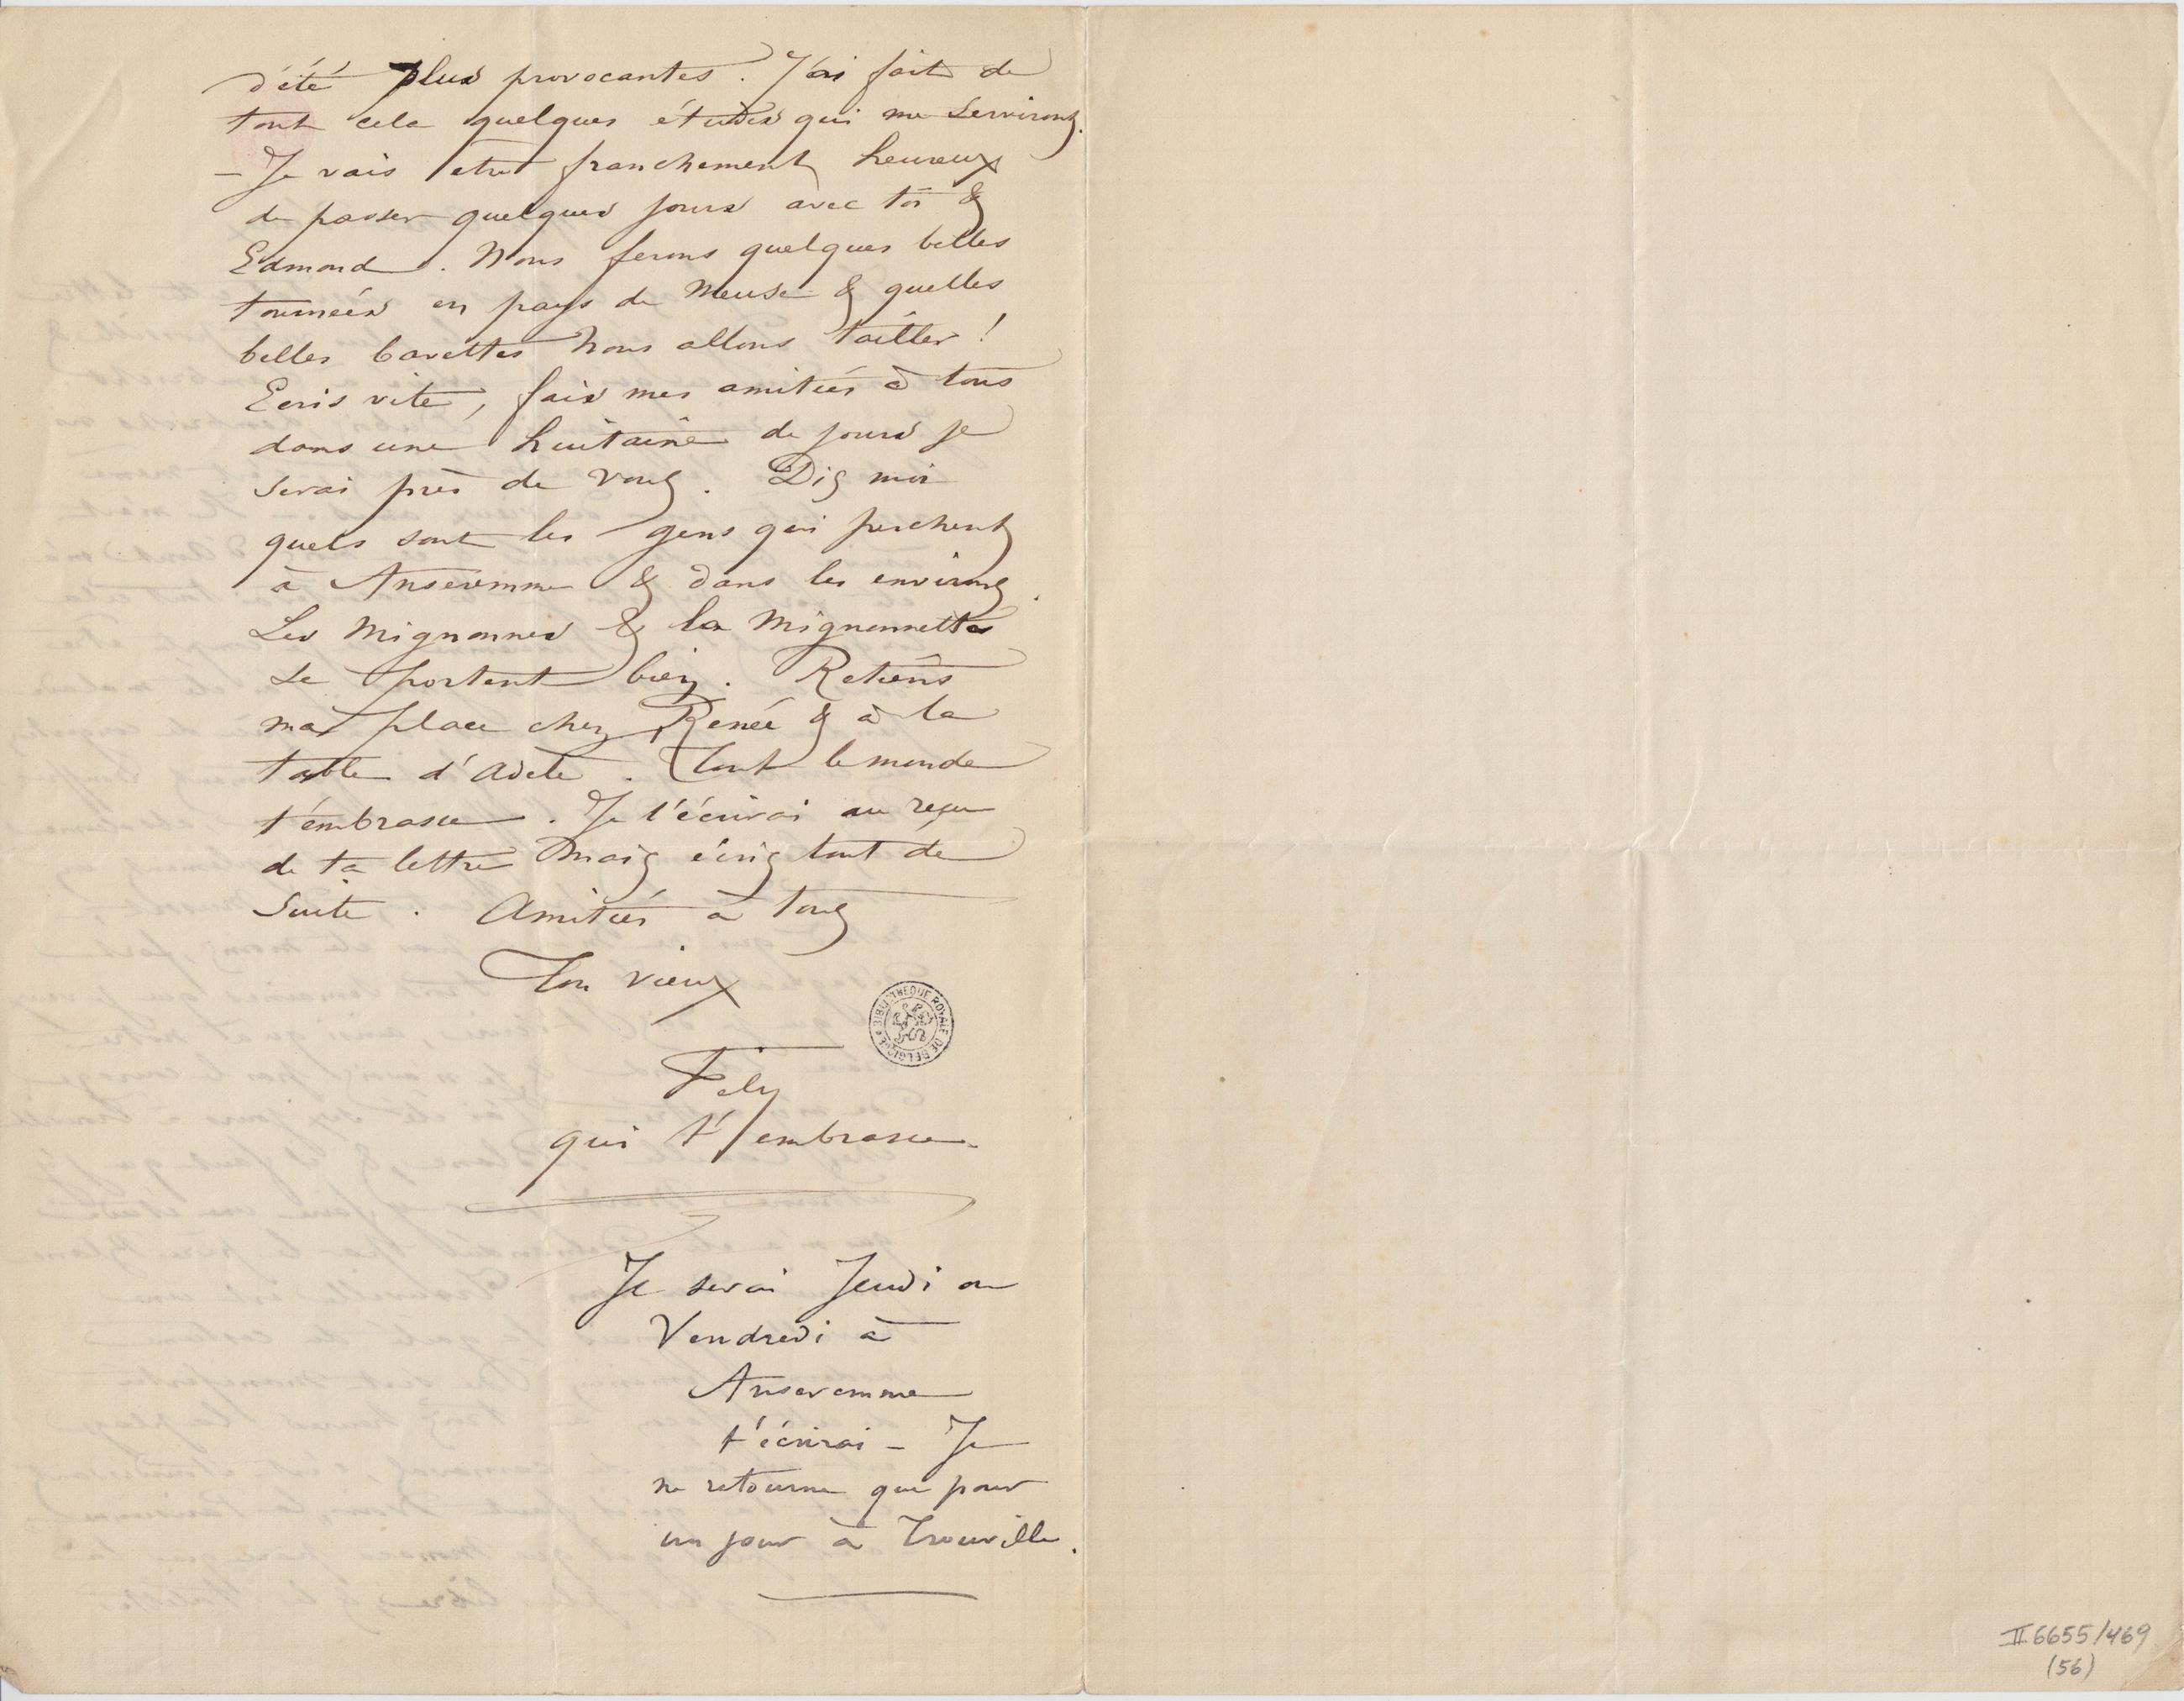 d'été plus provocantes. J'ai fait de
tout cela quelques études qui me serviront.
— Je vais être franchement heureux
de passer quelques jours avec toi &
Edmond. Nous ferons quelques belles
tournées en pays de Meuse & quelles
belles bavettes nous allons tailler !
Ecris vite, fais mes amitiés à tous
dans une huitaine de jours je
serai près de vous. Dis moi
quels sont les gens qui perchent
à Anseremme & dans les environs.
Les Mignonnes & la Mignonnette
se portent bien. Retiens
ma place chez Renée & à la
table d'Adèle. Tout le monde
t'embrasse. Je t'écrirai au reçu
de ta lettre mais écris tout de
suite. Amitiés à tous
Ton vieux
Fély
qui t'embrasse.
Je serai Jeudi ou
Vendredi à
Anseremme
t'écrirai — Je
ne retourne que pour
un jour à Trouville.
BIBLIOTHEQUE ROYALE DE BELGIQUE
II 6655/469
(56)